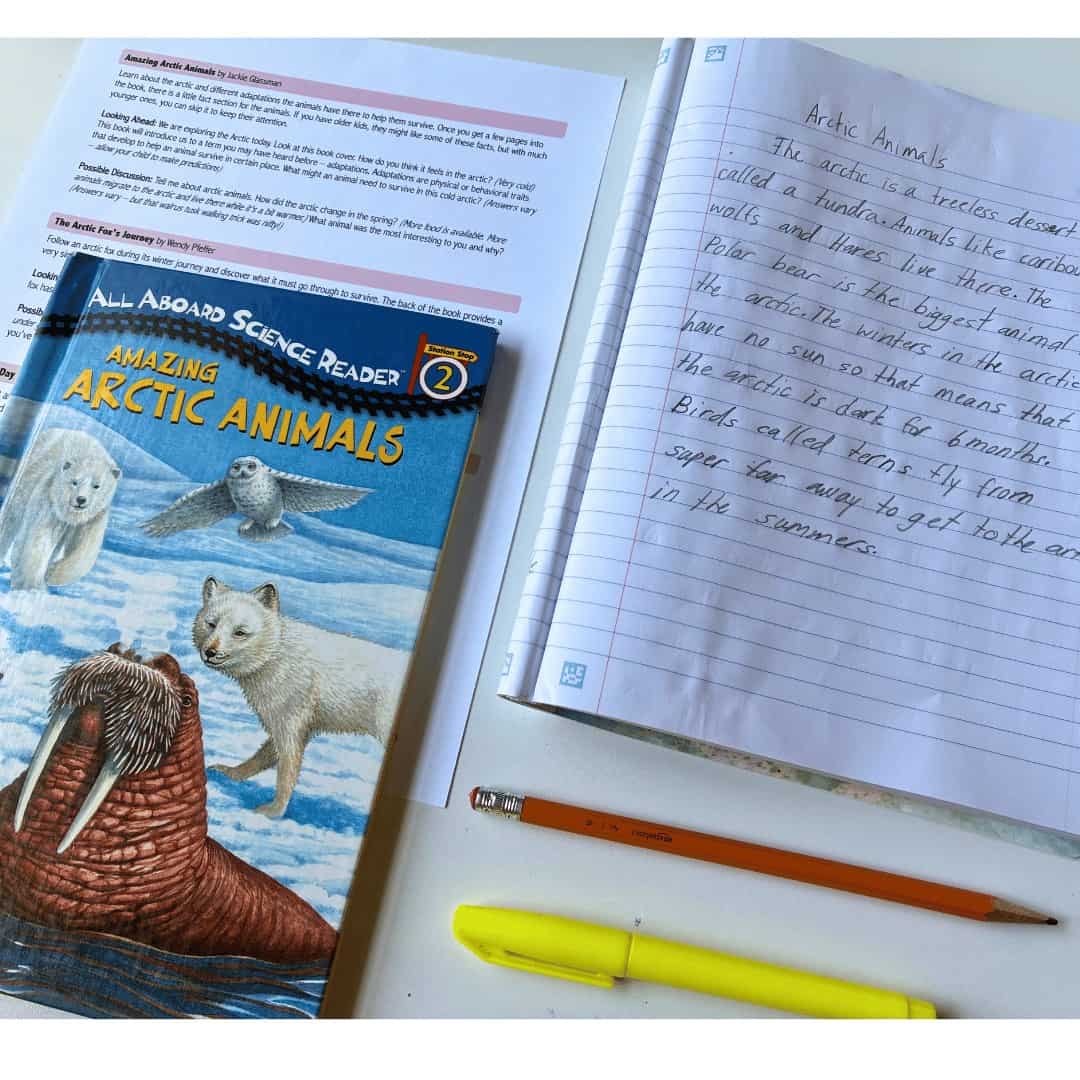 Amazing Arctic Animals by Jackie Glassman
Learn about the arctic and different adaptations the animals have there to help them survive. Once you get a few pages into
the book, there is a little fact section for the animals. If you have older kids, they might like some of these facts, but with much
younger ones, you can skip it to keep their attention.
Looking Ahead: We are exploring the Arctic today. Look at this book cover. How do you think it feels in the arctic? (Very cold)
This book will introduce us to a term you may have heard before – adaptations. Adaptations are physical or behavioral traits
that develop to help an animal survive in certain place. What might an animal need to survive in this cold arctic? (Answers vary
– allow your child to make predictions!)
Possible Discussion: Tell me about arctic animals. How did the arctic change in the spring? (More food is available. More
animals migrate to the arctic and live there while it's a bit warmer.) What animal was the most interesting to you and why?
(Answers vary – but that walrus tusk walking trick was nifty!)
The Arctic Fox's Journey by Wendy Pfeffer
Follow an arctic fox during its winter journey and discover what it must go through to survive. The back of the book provides a
very
Lookin
fox has
Possib
under
you've
Day
ALL ABOARD SCIENCE READER™
Station Stop
2
AMAZING
ARCTIC ANIMALS
Arctic Animals
The arctic is a treeless dessert
called a tundra. Animals like caribou
wolfs and Hares live there. The
Polar bear is the biggest animal
the arctic. The winters in the arctic
have no sun so that means that
the arctic is dark for 6 months.
Birds called terns fly from
super far away to get to the
in the summers.